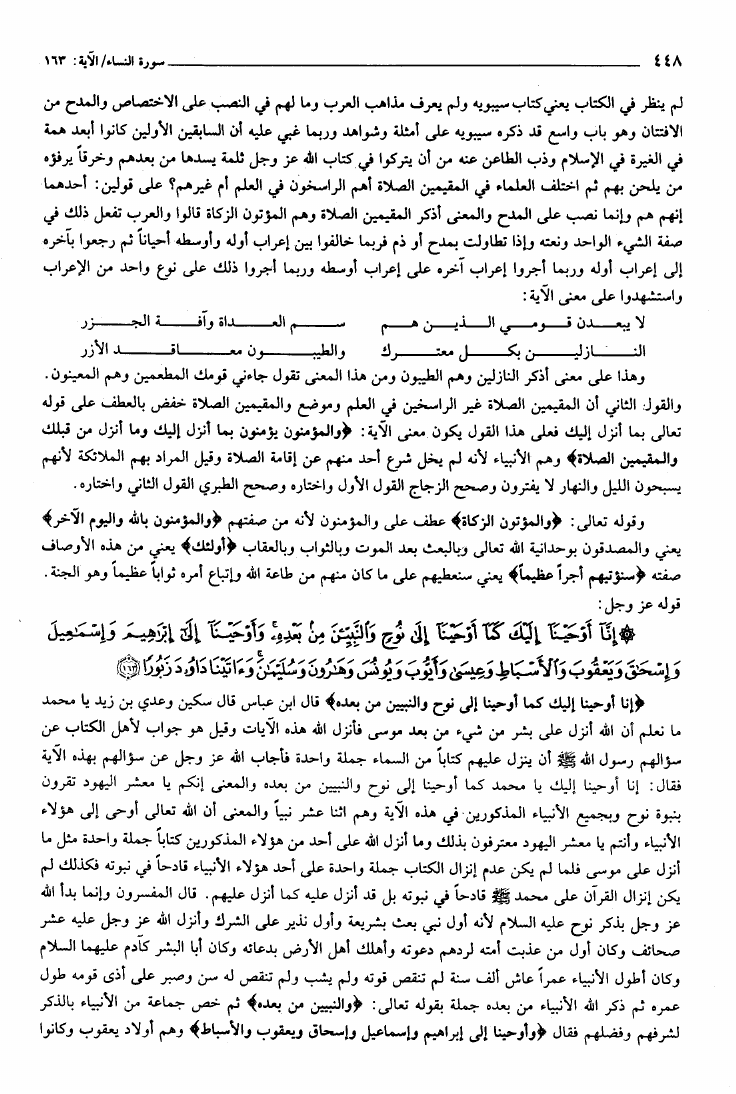 ٤٤٨ سورة النساء/ الآية: ١٦٣
لم ينظر في الكتاب يعني كتاب سيبويه ولم يعرف مذاهب العرب وما لهم في النصب على الاختصاص والمدح من
الافتتان وهو باب واسع قد ذكره سيبويه على أمثلة وشواهد وربما غبي عليه أن السابقين الأولين كانوا أبعد همة
في الغيرة في الإسلام وذب الطاعن عنه من أن يتركوا في كتاب الله عز وجل ثلمة يسدها من بعدهم وخرقاً يرفؤه
من يلحن بهم ثم اختلف العلماء في المقيمين الصلاة أهم الراسخون في العلم أم غيرهم؟ على قولين: أحدهما
إنهم هم وإنما نصب على المدح والمعنى أذكر المقيمين الصلاة وهم المؤتون الزكاة قالوا والعرب تفعل ذلك في
صفة الشيء الواحد ونعته وإذا تطاولت بمدح أو ذم فربما خالفوا بين إعراب أوله وأوسطه أحياناً ثم رجعوا بآخره
إلى إعراب أوله وربما أجروا إعراب آخره على إعراب أوسطه وربما أجروا ذلك على نوع واحد من الإعراب
واستشهدوا على معنى الآية:
لا يبعدن قومي الذين هم سم العداة وآفة الجزر
النازلين بكل معترك والطيبون معاقد الأزر
وهذا على معنى أذكر النازلين وهم الطيبون ومن هذا المعنى تقول جاءني قومك المطعمين وهم المعينون.
والقول الثاني أن المقيمين الصلاة غير الراسخين في العلم وموضع والمقيمين الصلاة خفض بالعطف على قوله
تعالى بما أنزل إليك فعلى هذا القول يكون معنى الآية: ﴿والمؤمنون يؤمنون بما أنزل إليك وما أنزل من قبلك
والمقيمين الصلاة﴾ وهم الأنبياء لأنه لم يخل شرع أحد منهم عن إقامة الصلاة وقيل المراد بهم الملائكة لأنهم
يسبحون الليل والنهار لا يفترون وصحح الزجاج القول الأول واختاره وصحح الطبري القول الثاني واختاره.
وقوله تعالى: ﴿والمؤتون الزكاة﴾ عطف على والمؤمنون لأنه من صفتهم ﴿والمؤمنون بالله واليوم الآخر﴾
يعني والمصدقون بوحدانية الله تعالى وبالبعث بعد الموت وبالثواب وبالعقاب ﴿أولئك﴾ يعني من هذه الأوصاف
صفته ﴿سنؤتيهم أجراً عظيماً﴾ يعني سنعطيهم على ما كان منهم من طاعة الله وإتباع أمره ثواباً عظيماً وهو الجنة.
قوله عز وجل:
۞ إِنَّا أَوْحَيْنَا إِلَيْكَ كَمَا أَوْحَيْنَا إِلَىٰ نُوحٍ وَالنَّبِيِّينَ مِنْ بَعْدِهِ وَأَوْحَيْنَا إِلَىٰ إِبْرَاهِيمَ وَإِسْمَاعِيلَ
وَإِسْحَاقَ وَيَعْقُوبَ وَالْأَسْبَاطِ وَعِيسَىٰ وَأَيُّوبَ وَيُونُسَ وَهَارُونَ وَسُلَيْمَانَ وَآتَيْنَا دَاوُودَ زَبُورًا ﴿١٦٣﴾
﴿إنا أوحينا إليك كما أوحينا إلى نوح والنبيين من بعده﴾ قال ابن عباس قال سكين وعدي بن زيد يا محمد
ما نعلم أن الله أنزل على بشر من شيء من بعد موسى فأنزل الله هذه الآيات وقيل هو جواب لأهل الكتاب عن
سؤالهم رسول الله ﷺ أن ينزل عليهم كتاباً من السماء جملة واحدة فأجاب الله عز وجل عن سؤالهم بهذه الآية
فقال: إنا أوحينا إليك يا محمد كما أوحينا إلى نوح والنبيين من بعده والمعنى إنكم يا معشر اليهود تقرون
بنبوة نوح وبجميع الأنبياء المذكورين في هذه الآية وهم اثنا عشر نبياً والمعنى أن الله تعالى أوحى إلى هؤلاء
الأنبياء وأنتم يا معشر اليهود معترفون بذلك وما أنزل الله على أحد من هؤلاء المذكورين كتاباً جملة واحدة مثل ما
أنزل على موسى فلما لم يكن عدم إنزال الكتاب جملة واحدة على أحد هؤلاء الأنبياء قادحاً في نبوته فكذلك لم
يكن إنزال القرآن على محمد ﷺ قادحاً في نبوته بل قد أنزل عليه كما أنزل عليهم. قال المفسرون وإنما بدأ الله
عز وجل بذكر نوح عليه السلام لأنه أول نبي بعث بشريعة وأول نذير على الشرك وأنزل الله عز وجل عليه عشر
صحائف وكان أول من عذبت أمته لردهم دعوته وأهلك أهل الأرض بدعائه وكان أبا البشر كآدم عليهما السلام
وكان أطول الأنبياء عمراً عاش ألف سنة لم تنقص قوته ولم يشب ولم تنقص له سن وصبر على أذى قومه طول
عمره ثم ذكر الله الأنبياء من بعده جملة بقوله تعالى: ﴿والنبيين من بعده﴾ ثم خص جماعة من الأنبياء بالذكر
لشرفهم وفضلهم فقال ﴿وأوحينا إلى إبراهيم وإسماعيل وإسحاق ويعقوب والأسباط﴾ وهم أولاد يعقوب وكانوا